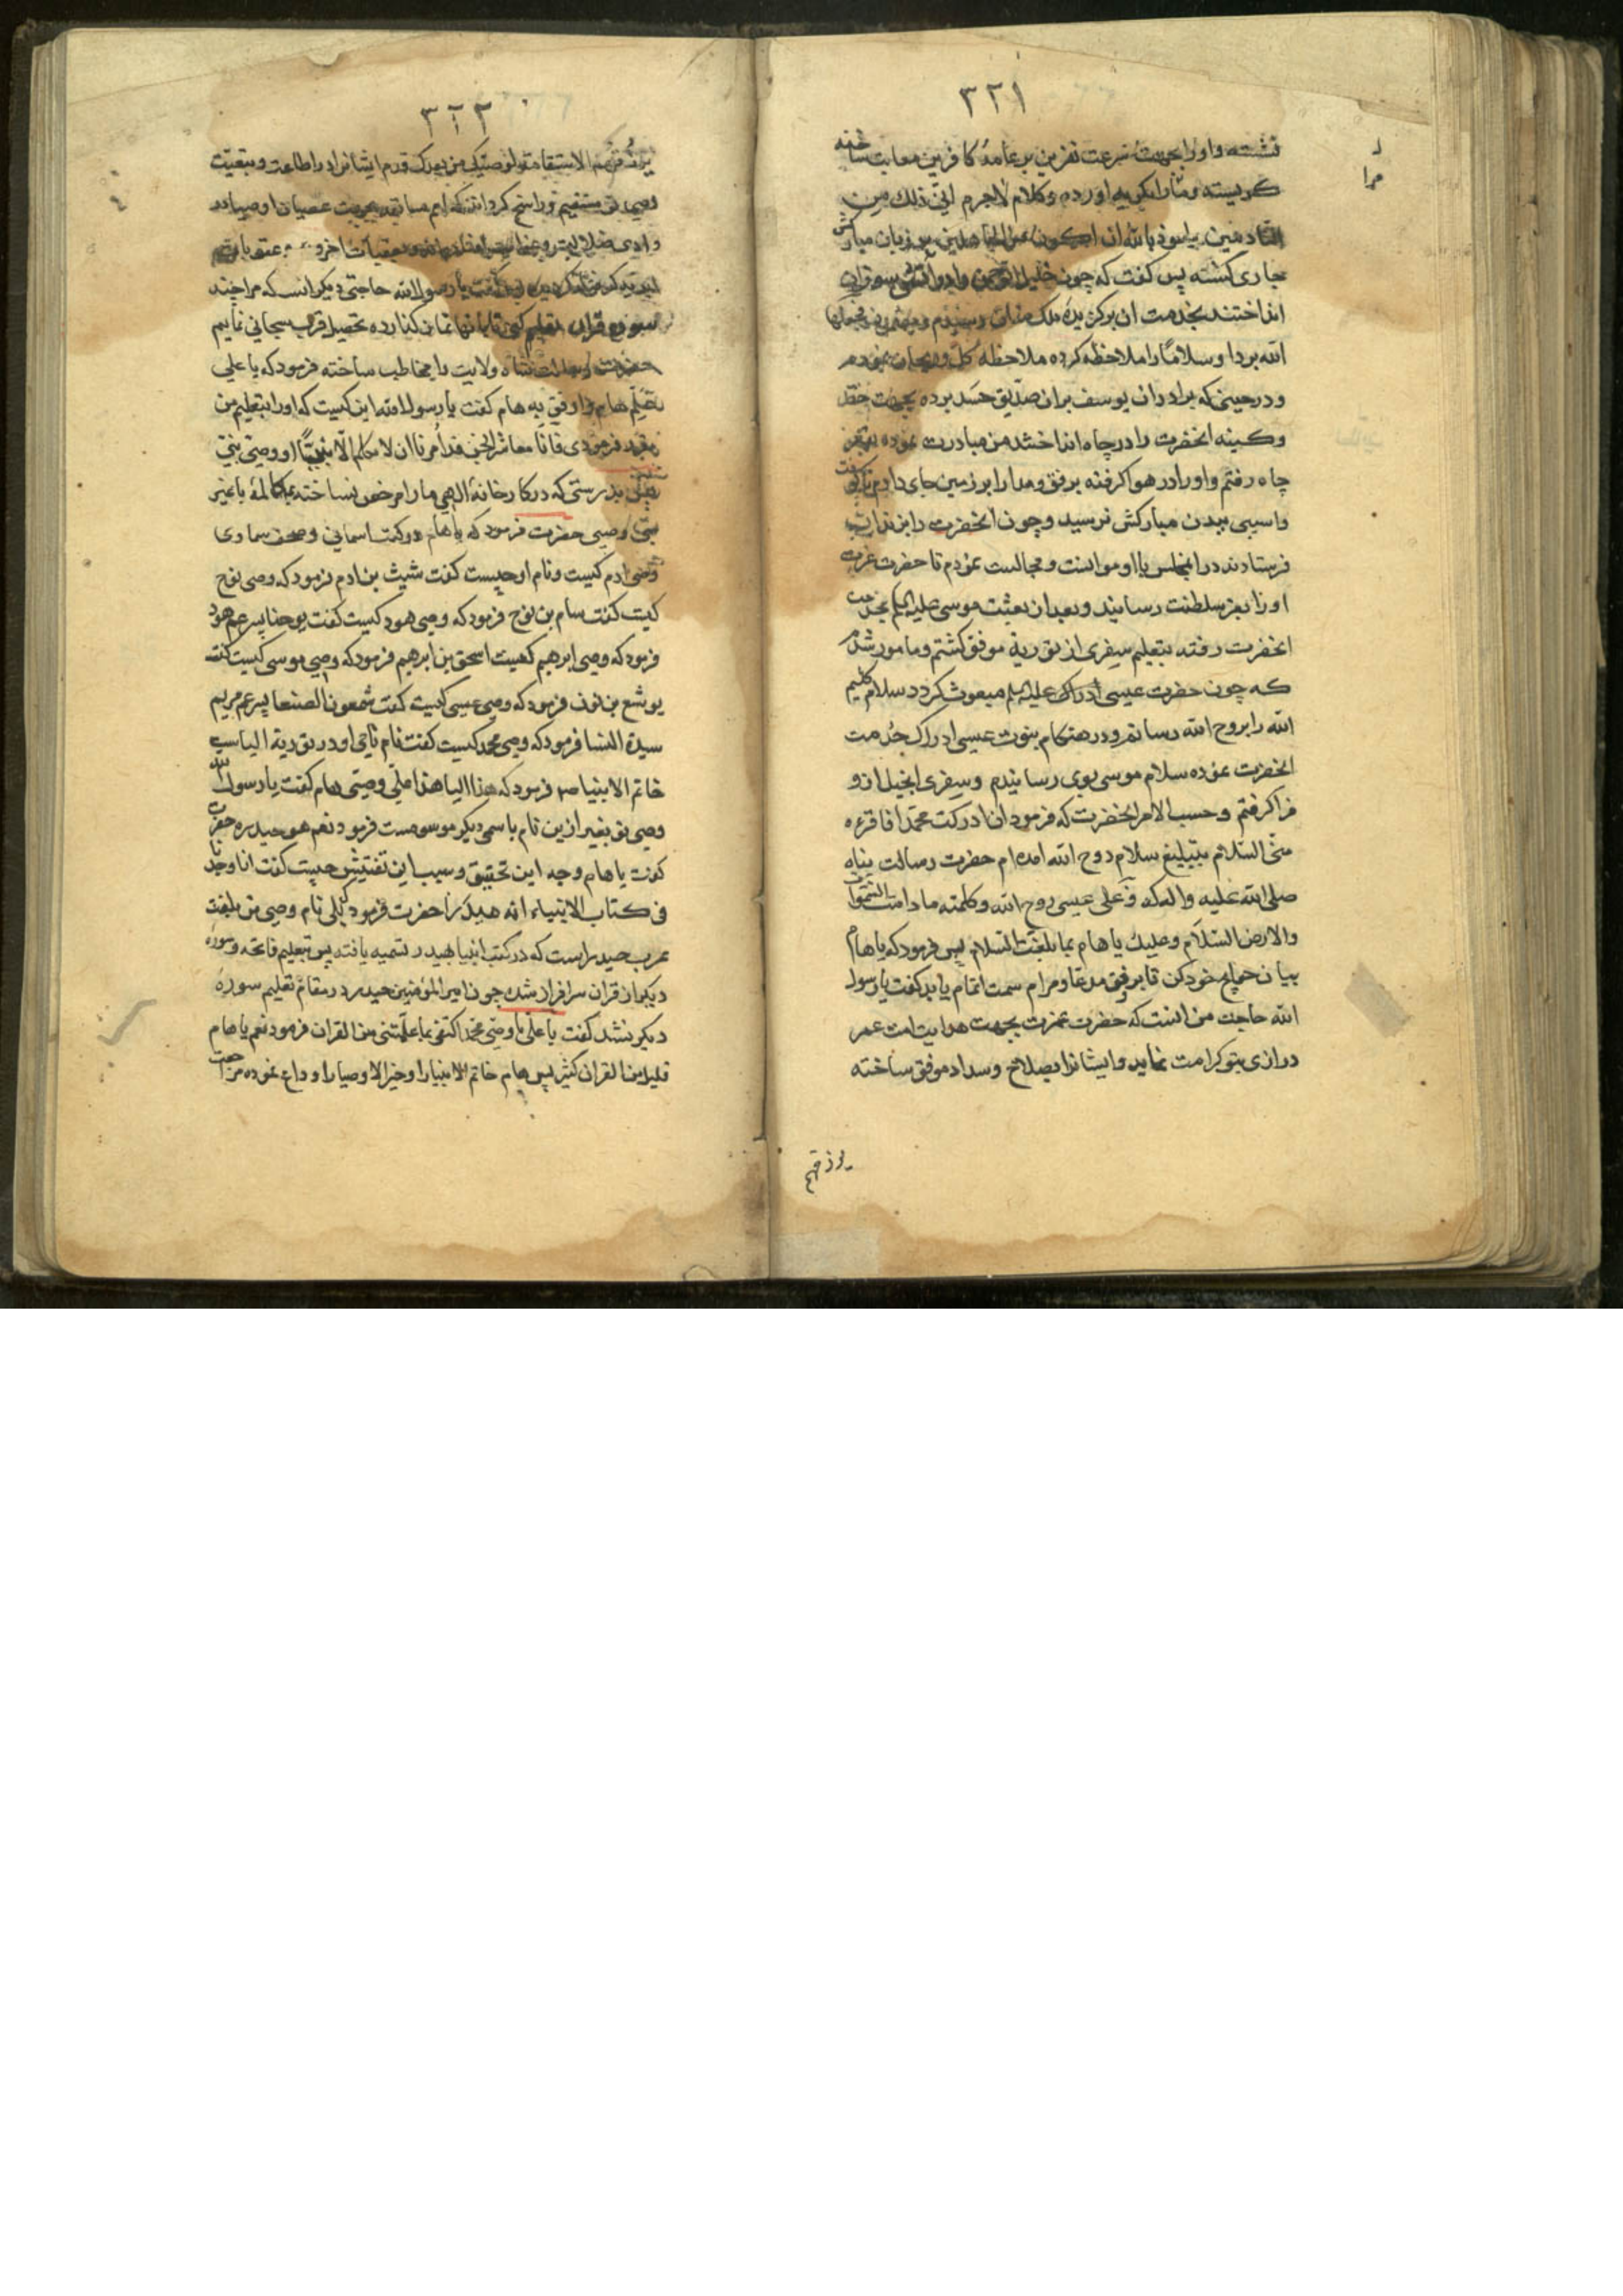 ٣٢١
نشسته واو را بجهت سرعت نفرین بر عامهٔ کافرین معاتب ساخته
کریسته و مارا بکریه اورده وکلام لاجرم انی ذلک من
النادمین واعوذ بالله ان اکون من الجاهلین بر زبان مبارکش
جاری کشته پس کفت که چون خلیل الرحمن را در آتش سوزان
انداختند بخدمت ان برکزیدهٔ ملک منان رسیدم
الله بردا وسلامًا را ملاحظه کرده ملاحظهٔ کل وریحان نمودم
ودرحینی که برادران یوسف بران صدّیق حسد برده بجهت حقد
وکینه انحضرت را در چاه انداختند من مبادرت نموده بقعر
چاه رفتم واورا در هوا کرفته برفق ومدارا بر زمین جای دادم تا کوفت
واسیبی ببدن مبارکش نرسید وچون انحضرت را بزندان
فرستادند در انمجلس با او موانست ومجالست نمودم تا حضرت عزت
اورا بعز سلطنت رسانید وبعد از بعثت موسی علیه السلام بخدمت
انحضرت رفته بتعلیم سفری از توریة موفق کشتم ومامور شدم
که چون حضرت عیسی ادراک علیه السلام مبعوث کردد سلام کلیم
الله را بروح الله رسانم ودر هنکام نبوت عیسی ادراک خدمت
انحضرت نموده سلام موسی بوی رسانیدم وسفری انجیل ازو
فراکرفتم وحسب الامر انحضرت که فرمود ان ادرکت محمدا فاقرءه
منی السّلام بتبلیغ سلام روح الله امده‌ام حضرت رسالت پناه
صلی الله علیه واله که وعلی عیسی روح الله وکلمته مادامت السّموات
والارض السّلام وعلیک یا هام بما بلغت السلام پس فرمود که یا هام
بیان حوایج خود کن تا بر وفق مدعا ومرام سمت اتمام یابد کفت یا رسول
الله حاجت من انست که حضرت عزت بجهت هدایت امت عمر
درازی بتو کرامت نماید وایشانرا بصلاح وسداد موفق ساخته
یرزقهم
٣٢٢
یرزقهم الاستقامة لوصیک من بعدک قدم ایشانرا در اطاعت وتبعیّت
وصی تو مستقیم وراسخ کرداند که امم سابقه بجهت عصیان اوصیا در
وادی ضلالت
حاجتی دیکر انست که مرا چند
سوره قران تعلیم کنی تا بانها نماز کذارده تحصیل قرب سبحانی نمایم
حضرت رسالت شاه ولایت را مخاطب ساخته فرمود که یا علی
تعلیم هام وارفق به هام کفت یا رسول الله این کیست که اورا بتعلیم من
فرمودی فانّا معاشر الجن قد امرنا ان لا نکلم الّا نبیًّا او وصیّ نبیّ
بدرستی که در کارخانهٔ الهی مارا مرخص نساخته بمکالمهٔ با غیر
نبیّ و وصی حضرت فرمود که یا هام در کتب اسمانی وصحف سماوی
وصی ادم کیست ونام او چیست کفت شیث بن ادم فرمود که وصی نوح
کیست کفت سام بن نوح فرمود که وصی هود کیست کفت یوحنا پسر عم هود
فرمود که وصی ابرهیم کیست اسحق بن ابرهیم فرمود که وصی موسی کیست کفت
یوشع بن نون فرمود که وصی عیسی کیست کفت شمعون الصفا پسر عم مریم
سیدة النسا فرمود که وصی محمد کیست کفت نام نامی او در توریة الیاست
خاتم الانبیا ص فرمود که هذا الیا هذا علی وصیّی هام کفت یا رسول الله
وصی تو بغیر ازین نام باسمی دیکر موسومست فرمود نعم هو حیدره حضرت
کفت یا هام وجه این تحقیق وسبب این تفتیش چیست کفت انا وجدنا
فی کتاب الانبیاء انه هیدرا حضرت فرمود که بلی نام وصی من بلغت
عرب حیدراست که در کتب انبیا بهیدر تسمیه یافته پس بتعلیم فاتحه وسوره
دیکر از قران سرافراز شد چون امیرالمؤمنین حیدر در مقام تعلیم سورهٔ
دیکر نشد کفت یا علی یا وصی محمد اکتفی بما علّمتنی من القران فرمود نعم یا هام
قلیل من القران کثیر پس هام خاتم الانبیا را وخیر الاوصیا را وداع نموده مراجعت